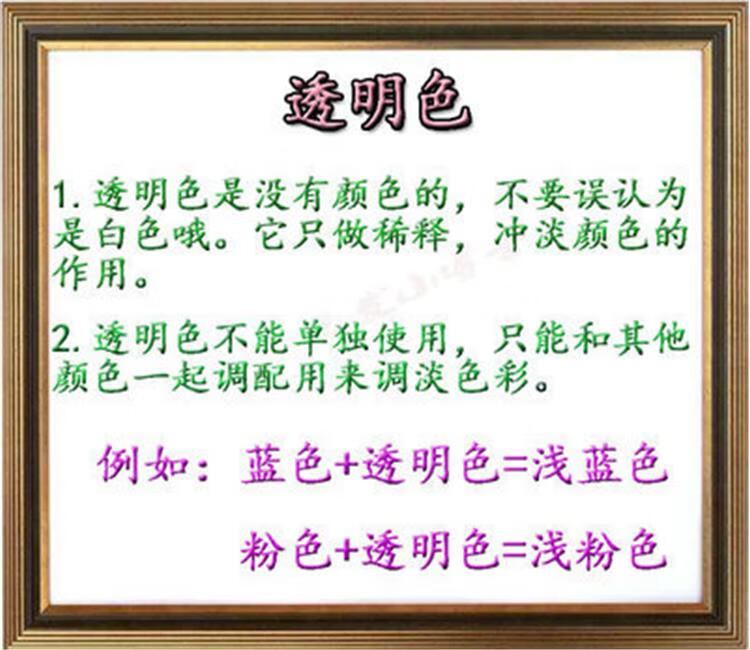 透明色
1. 透明色是没有颜色的，不要误认为
是白色哦。它只做稀释，冲淡颜色的
作用。
2. 透明色不能单独使用，只能和其他
颜色一起调配用来调淡色彩。
例如：蓝色+透明色=浅蓝色
粉色+透明色=浅粉色